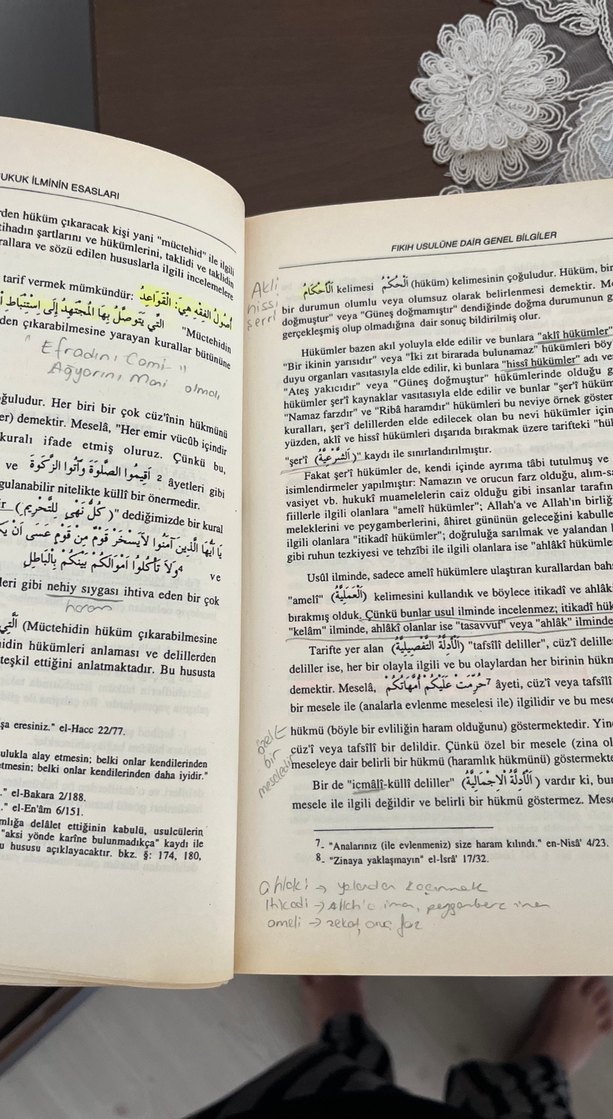 UKUK İLMİNİN ESASLARI
rden hüküm çıkaracak kişi yani "müctehid" ile ilgili
tihadın şartlarını ve hükümlerini, taklidi ve taklidin
rallara ve sözü edilen hususlarla ilgili incelemelere
tarif vermek mümkündür: أُصُولُ الْفِقْهِ هِيَ: الْقَوَاعِدُ
الَّتِي يَتَوَصَّلُ بِهَا الْمُجْتَهِدُ إِلَى اِسْتِنْبَاطِ "Müctehidin
den çıkarabilmesine yarayan kurallar bütününe
"Efradını Cami-"
Ağyarını Mani olmalı
oğuludur. Her biri bir çok cüz'inin hükmünü
er) demektir. Meselâ, "Her emir vücûb içindir
kuralı ifade etmiş oluruz. Çünkü bu,
ve أَقِيمُوا الصَّلٰوةَ وَآتُوا الزَّكٰوةَ 2 âyetleri gibi
gulanabilir nitelikte küllî bir önermedir.
(كُلُّ نَهْىٍ لِلتَّحْرِيمِ)" dediğimizde bir kural
يَا أَيُّهَا الَّذِينَ آمَنُوا لَا يَسْخَرْ قَوْمٌ مِنْ قَوْمٍ عَسَى أَنْ
ve وَلَا تَأْكُلُوا أَمْوَالَكُمْ بَيْنَكُمْ بِالْبَاطِلِ 4
leri gibi nehiy sıygası ihtiva eden bir çok
haram
الَّتِي (Müctehidin hüküm çıkarabilmesine
hidin hükümleri anlaması ve delillerden
teşkil ettiğini anlatmaktadır. Bu hususta
şa eresiniz." el-Hacc 22/77.
ulukla alay etmesin; belki onlar kendilerinden
etmesin; belki onlar kendilerinden daha iyidir."
." el-Bakara 2/188.
." el-En'âm 6/151.
mlığa delâlet ettiğinin kabulü, usulcülerin
"aksi yönde karîne bulunmadıkça" kaydı ile
u hususu açıklayacaktır. bkz. §: 174, 180,
FIKIH USULÜNE DAİR GENEL BİLGİLER
Akli
hissi
şer'i
اَلْأَحْكَامُ kelimesi اَلْحُكْمُ (hüküm) kelimesinin çoğuludur. Hüküm, bir
bir durumun olumlu veya olumsuz olarak belirlenmesi demektir. Me
doğmuştur" veya "Güneş doğmamıştır" dendiğinde doğma durumunun g
gerçekleşmiş olup olmadığına dair sonuç bildirilmiş olur.
Hükümler bazen akıl yoluyla elde edilir ve bunlara "aklî hükümler"
"Bir ikinin yarısıdır" veya "İki zıt birarada bulunamaz" hükümleri böy
duyu organları vasıtasıyla elde edilir, ki bunlara "hissî hükümler" adı ve
"Ateş yakıcıdır" veya "Güneş doğmuştur" hükümlerinde olduğu g
hükümler şer'î kaynaklar vasıtasıyla elde edilir ve bunlar "şer'î hüküm
"Namaz farzdır" ve "Ribâ haramdır" hükümleri bu neviye örnek göster
kuralları, şer'î delillerden elde edilecek olan bu nevi hükümler için
yüzden, aklî ve hissî hükümleri dışarıda bırakmak üzere tarifteki "hük
"şer'î (اَلشَّرْعِيَّةُ)" kaydı ile sınırlandırılmıştır.
Fakat şer'î hükümler de, kendi içinde ayrıma tâbi tutulmuş ve
isimlendirmeler yapılmıştır: Namazın ve orucun farz olduğu, alım-sa
vasiyet vb. hukukî muamelelerin caiz olduğu gibi insanlar tarafın
fiillerle ilgili olanlara "amelî hükümler"; Allah'a ve Allah'ın birliğ
meleklerini ve peygamberlerini, âhiret gününün geleceğini kabulle
ilgili olanlara "itikadî hükümler"; doğruluğa sarılmak ve yalandan k
gibi ruhun tezkiyesi ve tehzîbi ile ilgili olanlara ise "ahlâkî hükümle
Usûl ilminde, sadece amelî hükümlere ulaştıran kurallardan bah
"amelî" (اَلْعَمَلِيَّةُ) kelimesini kullandık ve böylece itikadî ve ahlâk
bırakmış olduk. Çünkü bunlar usul ilminde incelenmez; itikadî hük
"kelâm" ilminde, ahlâkî olanlar ise "tasavvuf" veya "ahlâk" ilminde
Tarifte yer alan (اَلْأَدِلَّةُ التَّفْصِيلِيَّةُ) "tafsîlî deliller", cüz'î deliller
deliller ise, her bir olayla ilgili ve bu olaylardan her birinin hüküm
demektir. Meselâ, حُرِّمَتْ عَلَيْكُمْ أُمَّهَاتُكُمْ 7 âyeti, cüz'î veya tafsîlî
bir mesele ile (analarla evlenme meselesi ile) ilgilidir ve bu mese
hükmü (böyle bir evliliğin haram olduğunu) göstermektedir. Yine
cüz'î veya tafsîlî bir delildir. Çünkü özel bir mesele (zina ol
meseleye dair belirli bir hükmü (haramlık hükmünü) göstermekte
özel
bir
meseledir
Bir de "icmâlî-küllî deliller" (اَلْأَدِلَّةُ الْإِجْمَالِيَّةُ) vardır ki, bun
mesele ile ilgili değildir ve belirli bir hükmü göstermez. Mese
7- "Analarınız (ile evlenmeniz) size haram kılındı." en-Nisâ' 4/23.
8- "Zinaya yaklaşmayın" el-İsrâ' 17/32.
ahlaki → yalandan kaçınmak
itikadi → Allah'a iman, peygambere iman
ameli → zekat, oruç farz